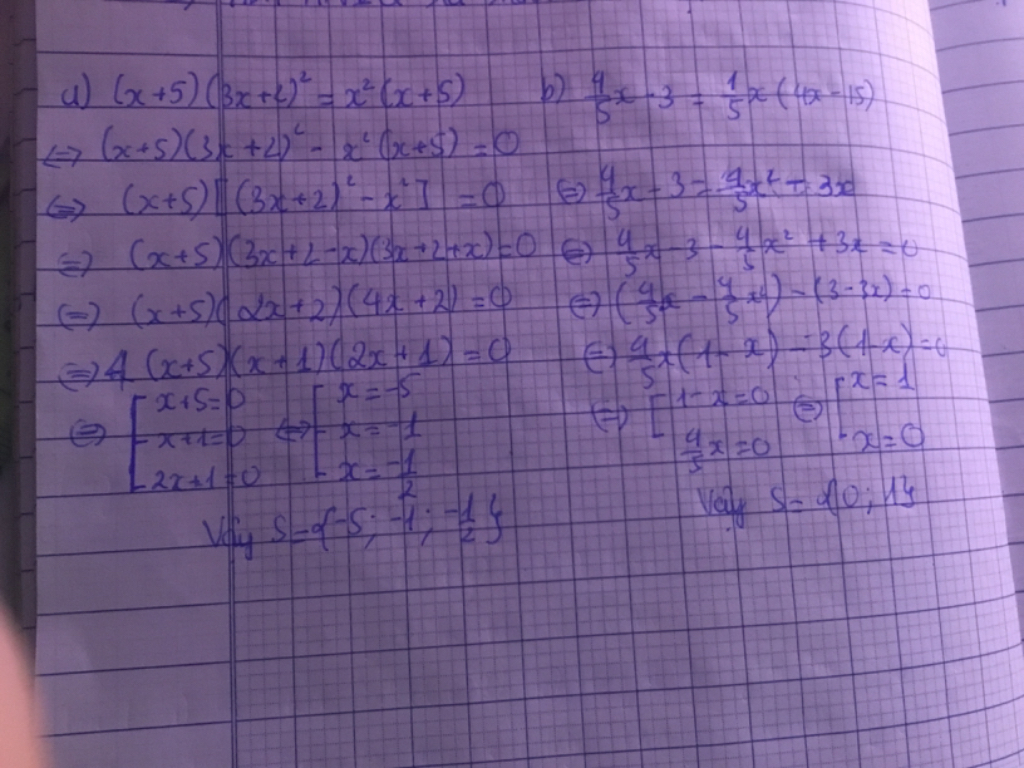 a) (x+5)(3x+2)² = x²(x+5)
⇔ (x+5)(3x+2)² - x²(x+5) = 0
⇔ (x+5)[(3x+2)² - x²] = 0
⇔ (x+5)(3x+2-x)(3x+2+x)=0
⇔ (x+5)(2x+2)(4x+2)=0
⇔ 4(x+5)(x+1)(2x+1)=0
⇔ [x+5=0 ⇔ [x=-5
x+1=0 x=-1
2x+1=0 x=-1/2
Vậy S={-5; -1; -1/2}
b) 4/5x - 3 = 1/5x(4x-15)
⇔ 4/5x - 3 = 4/5x² - 3x
⇔ 4/5x - 3 - 4/5x² + 3x = 0
⇔ (4/5x - 4/5x²) - (3-3x) = 0
⇔ 4/5x(1-x) - 3(1-x) = 0
⇔ [1-x=0 ⇔ [x=1
4/5x=0 x=0
Vậy S={0; 1}